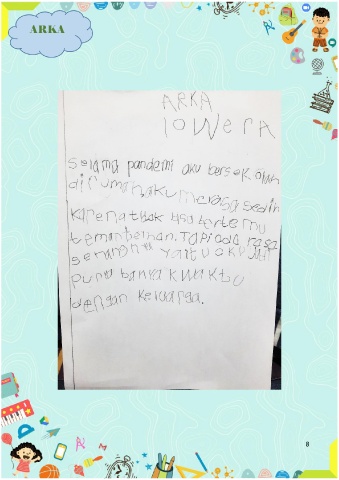 ARKA
ARKA
lowerA
Selama pandemi aku bersekolah
dirumah, aku merasa sedih
karena tidak bisa bertemu
teman teman. Tapi ada rasa
senangnya yaitu aku jadi
punya banyak waktu
dengan keluarga.
8